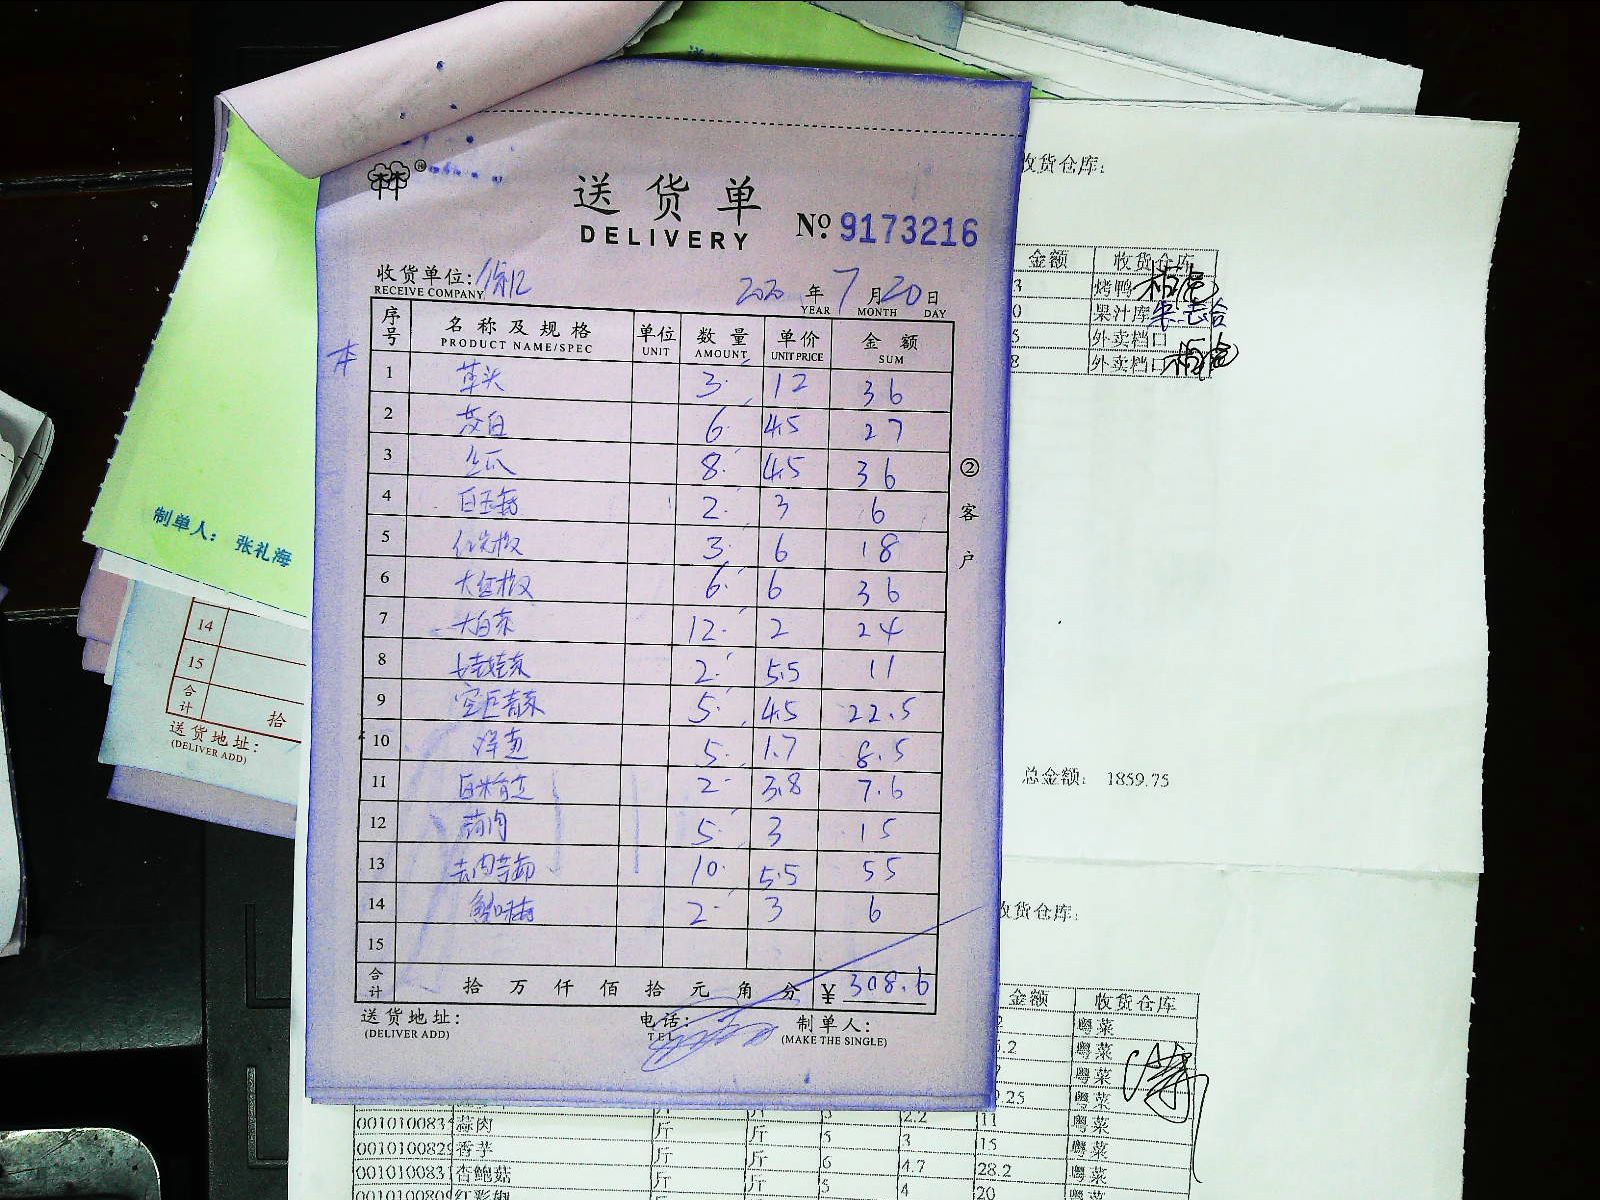 送货单
DELIVERY
№ 9173216
收货单位:
RECEIVE COMPANY
2020 年 7 月 20 日
YEAR MONTH DAY
序号 名称及规格 单位 数量 单价 金额
PRODUCT NAME/SPEC UNIT AMOUNT UNIT PRICE SUM
1 草头 3 12 36
2 茭白 6 4.5 27
3 丝瓜 8 4.5 36
4 白玉菇 2 3 6
5 3 6 18
6 大红椒 6 6 36
7 大白菜 12 2 24
8 娃娃菜 2 5.5 11
9 青菜 5 4.5 22.5
10 洋葱 5 1.7 8.5
11 2 3.8 7.6
12 蒜肉 5 3 15
13 10 5.5 55
14 蟹味菇 2 3 6
15
合计 拾 万 仟 佰 拾 元 角 分 ¥ 308.6
送货地址:
(DELIVER ADD)
电话:
TEL
制单人:
(MAKE THE SINGLE)
② 客户
制单人: 张礼海
14
15
合计 拾
送货地址:
(DELIVER ADD)
收货仓库:
金额 收货仓库
3 烤鸭
0 果汁库
5 外卖档口
8 外卖档口
总金额: 1859.75
收货仓库:
金额 收货仓库
粤菜
.2 粤菜
粤菜
.25 粤菜
2.2 11 粤菜
001010083 蒜肉 斤 斤 5 3 15 粤菜
001010082 香芋 斤 斤 6 4.7 28.2 粤菜
001010083 杏鲍菇 斤 斤 5 4 20 粤菜
红彩椒